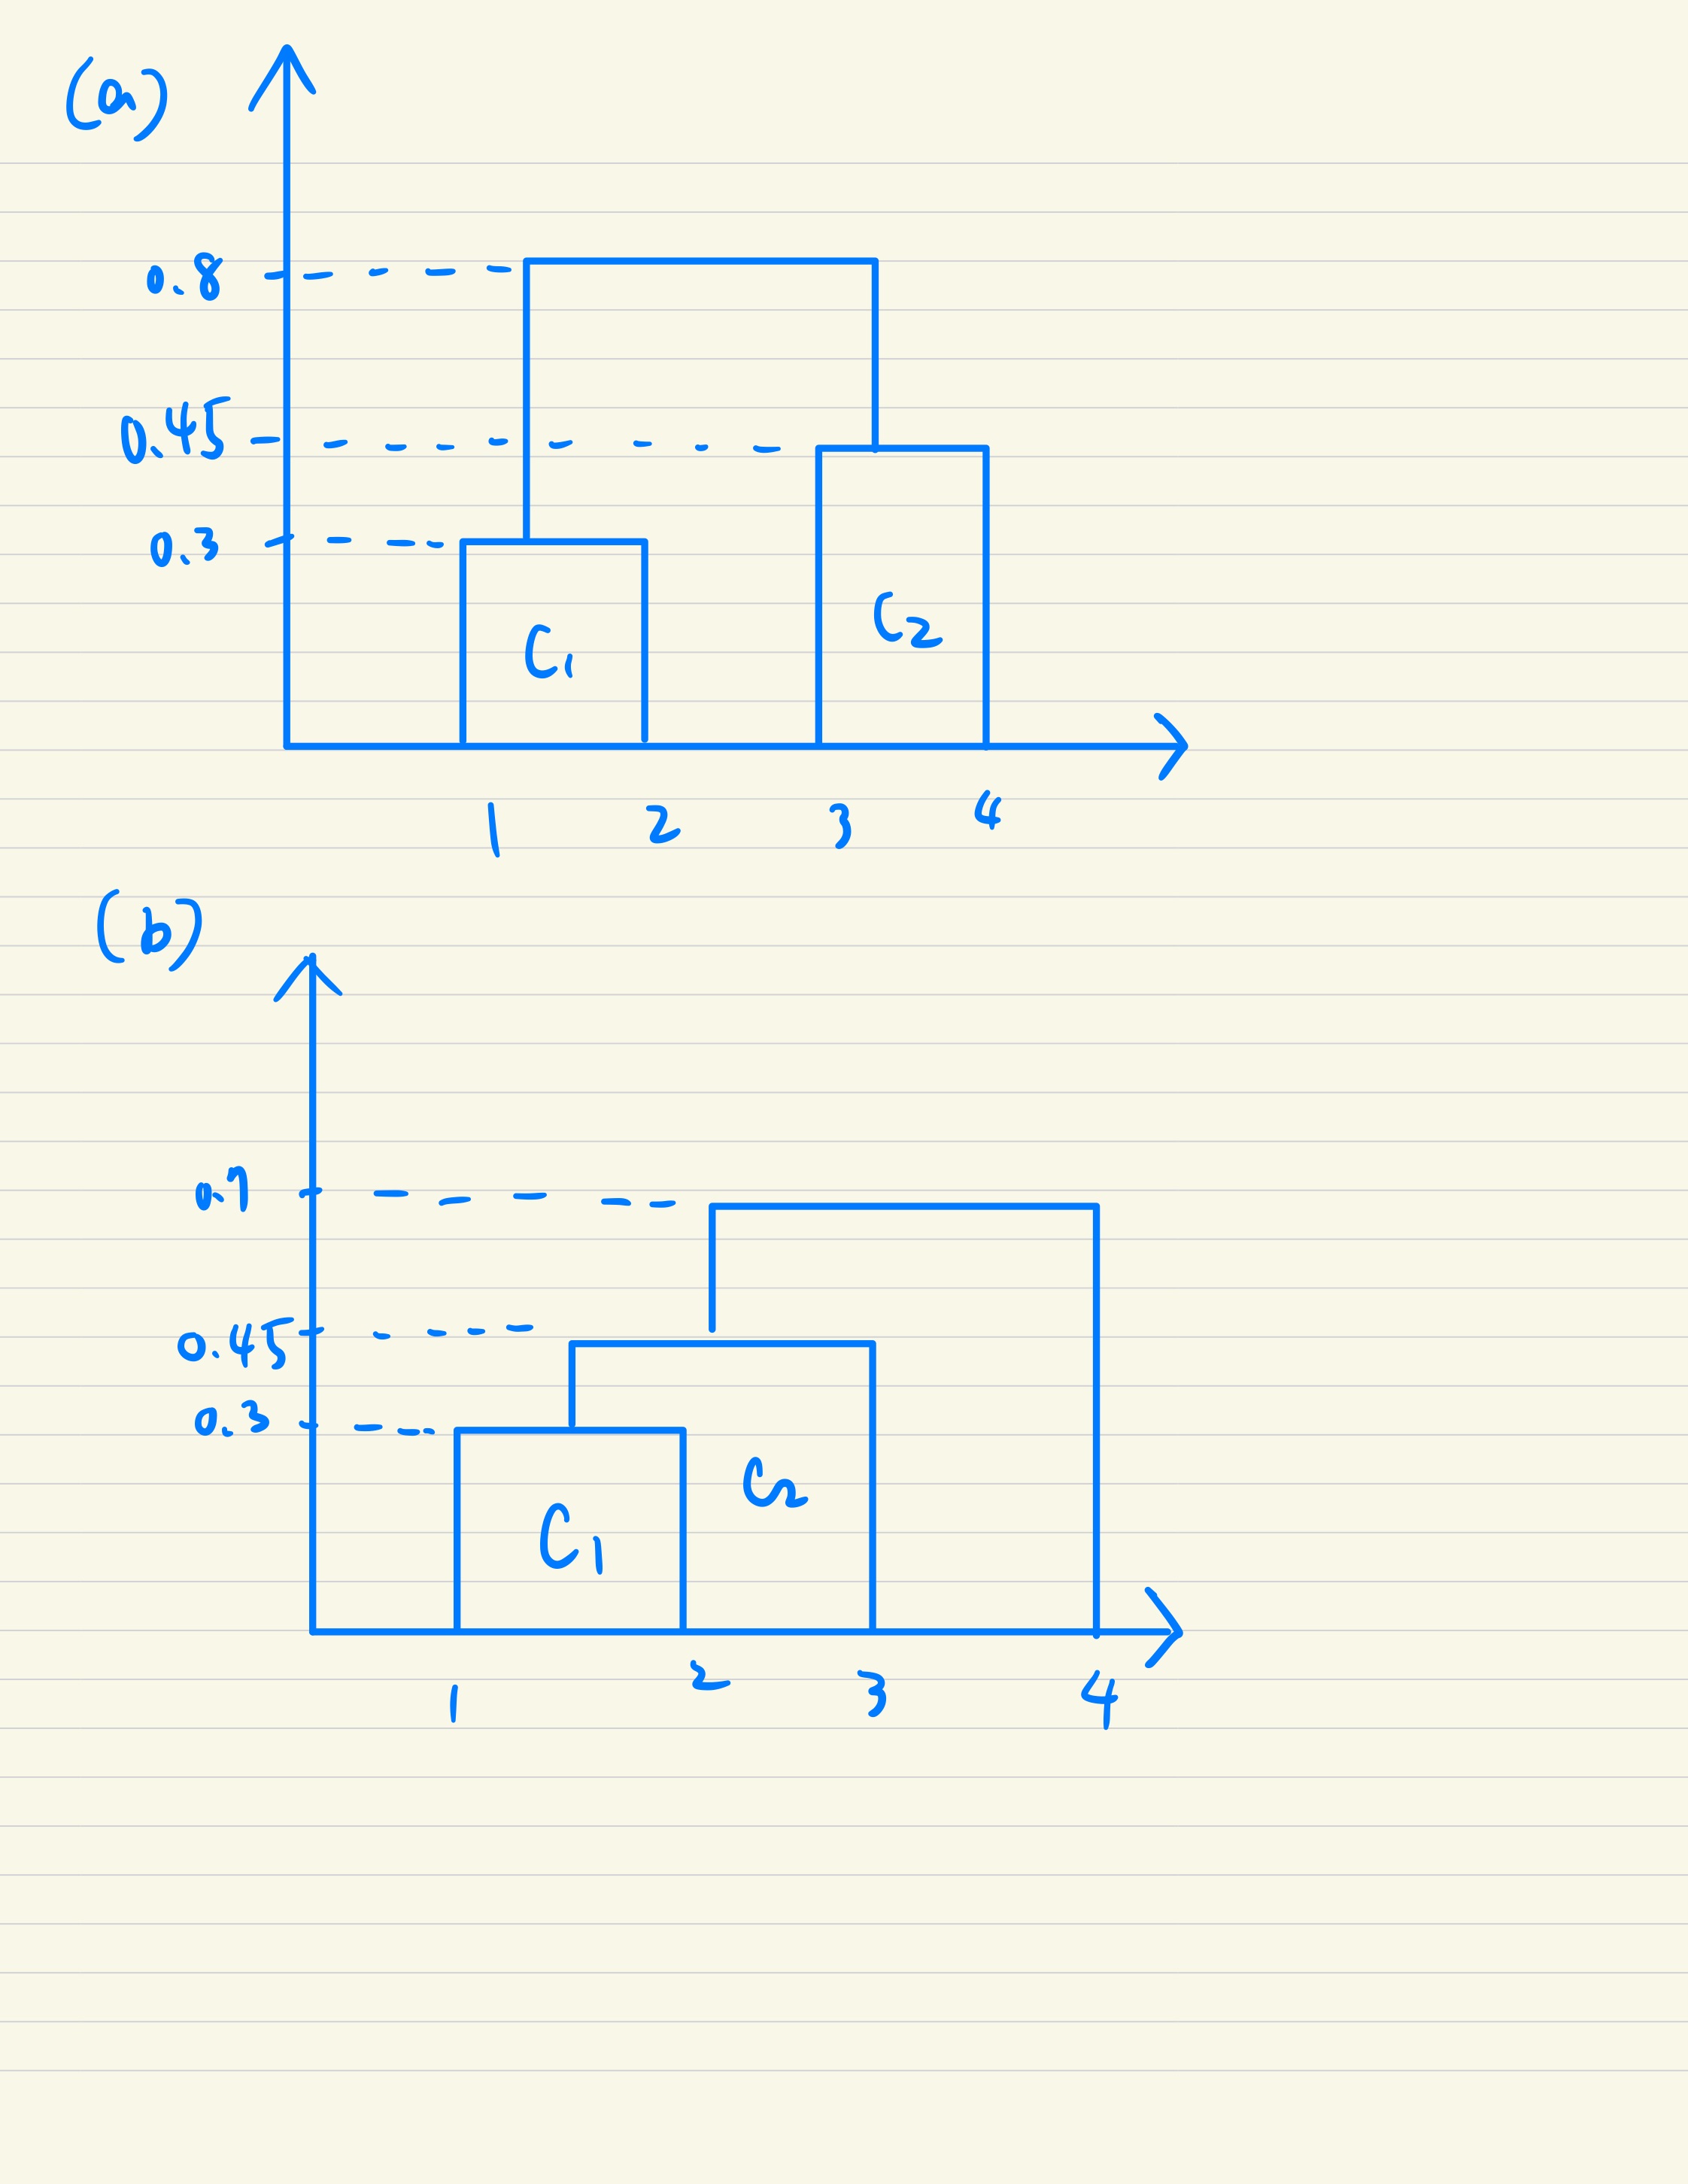 (a)
0.8
0.45
0.3
C1
C2
1 2 3 4
(b)
0.7
0.45
0.3
C2
C1
1 2 3 4